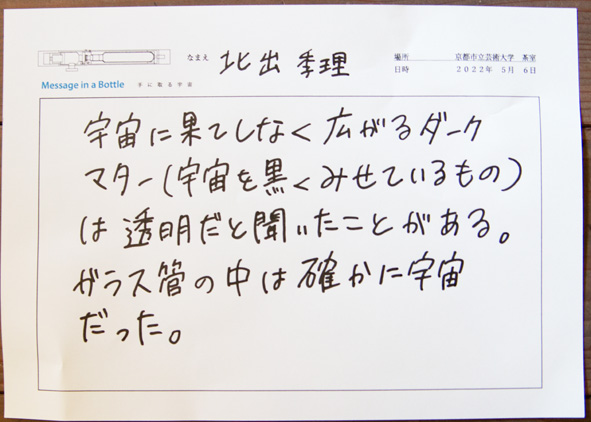 なまえ 北出 季理
場所 京都市立芸術大学 茶室
日時 2022年 5月 6日
Message in a Bottle 手に取る宇宙
宇宙に果てしなく広がるダーク
マター(宇宙を黒くみせているもの)
は透明だと聞いたことがある。
ガラス管の中は確かに宇宙
だった。